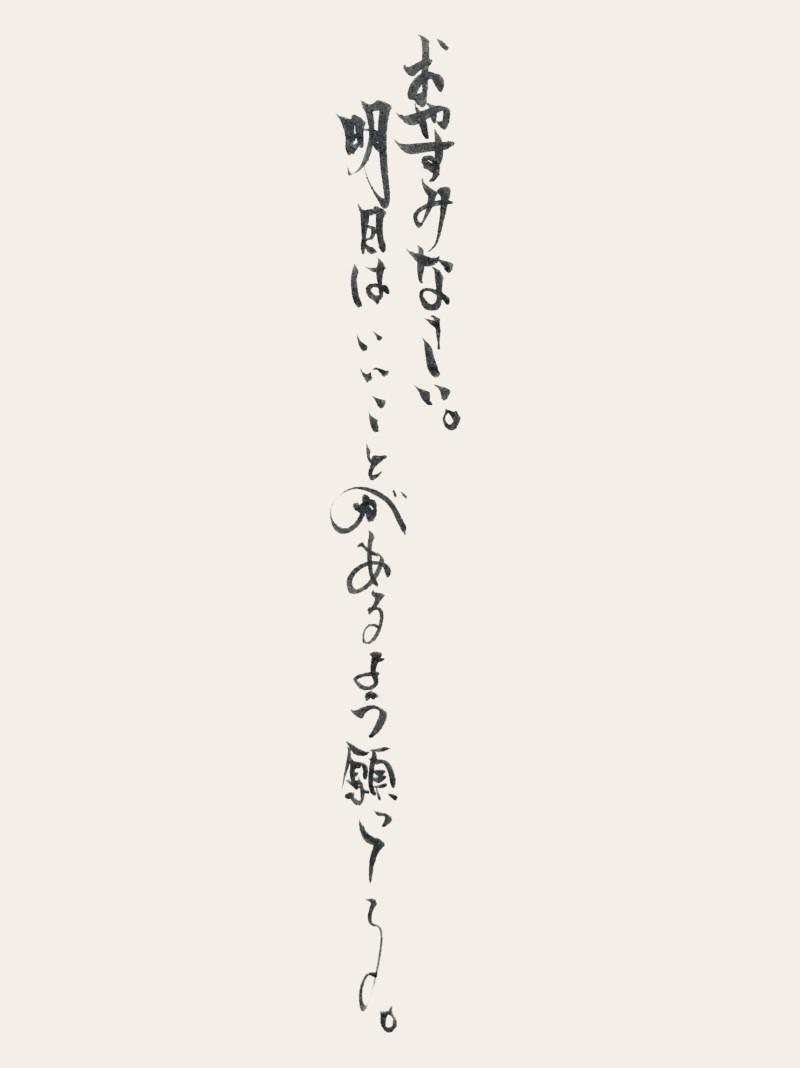 おやすみなさい。
明日はいいことがあるよう願ってる。